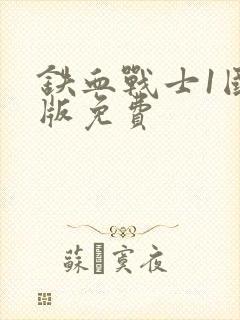 鉄血戰士1国
版免費
蘇 寞夜